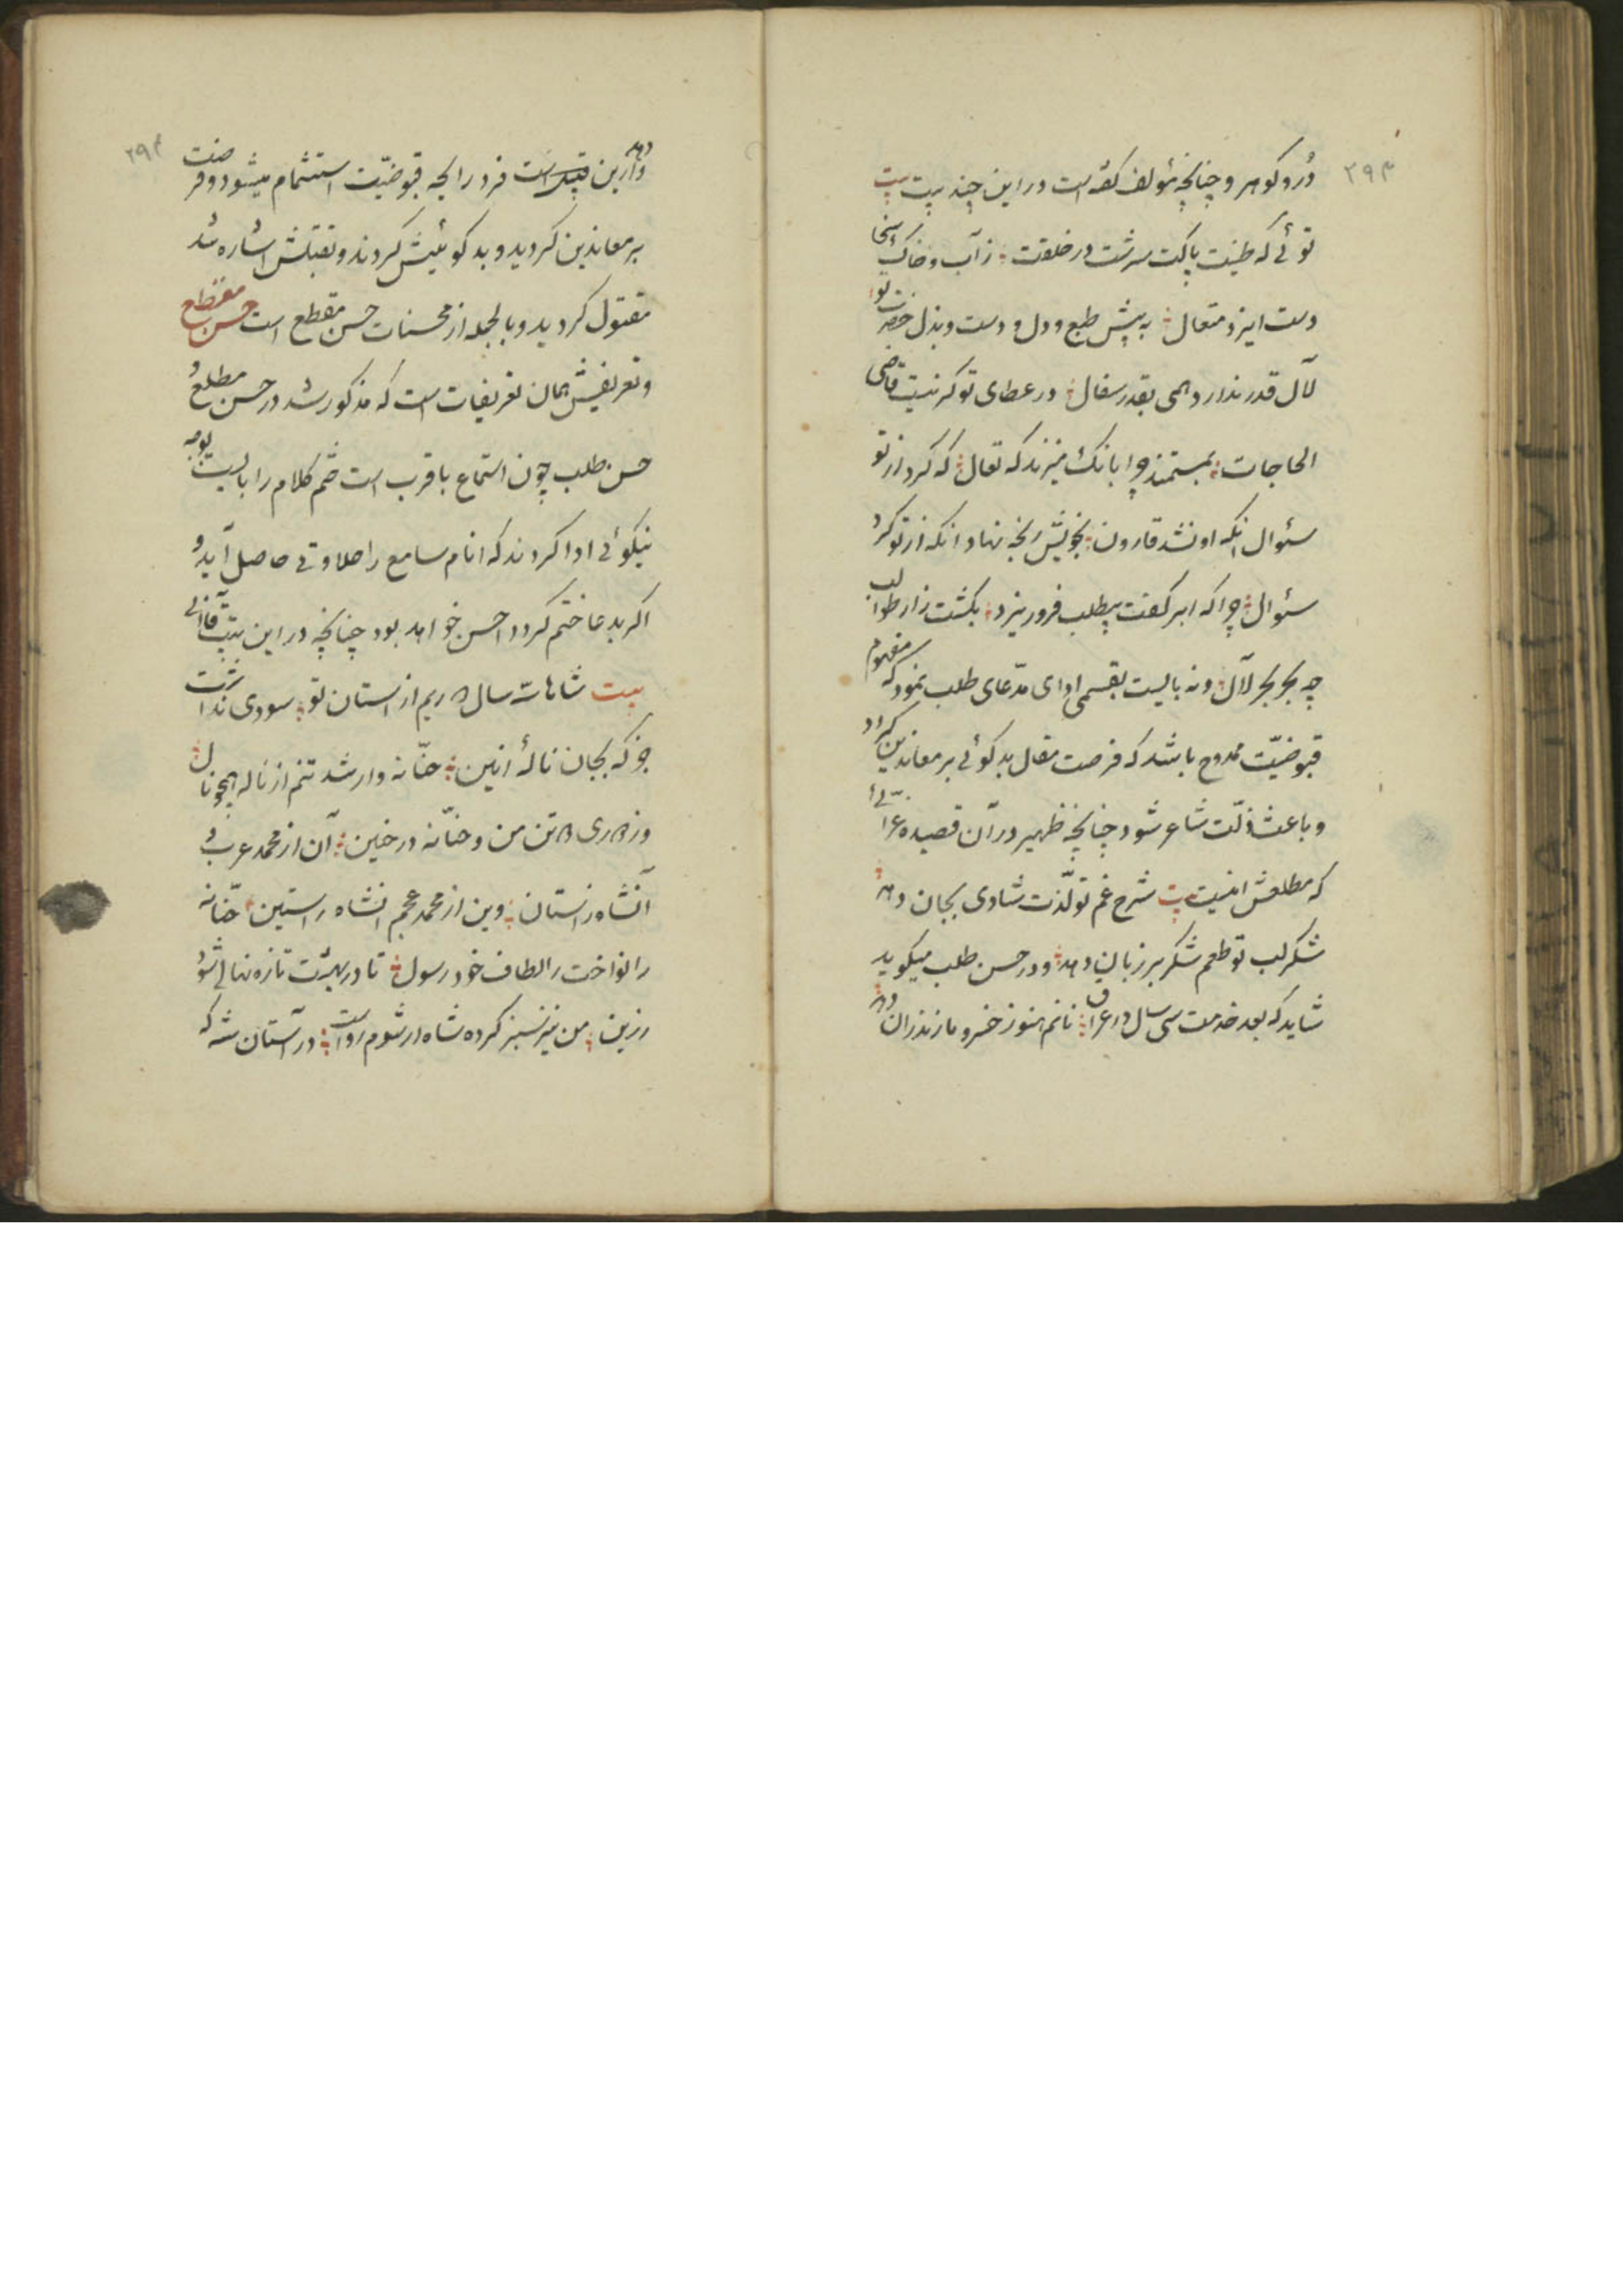 ۲۹۳
دُر و کوهر و چنانچه مؤلف کفته است در این چند بیت بیت
توئی که طینت پاکت سرشت در خلقت ز آب و خاک سخا
دست ایزد متعال به پیش طبع و دل و دست و بذل حضرت تو
لآل قدر ندارد همی بقدر سفال در عطای تو کر نیست قاضی
الحاجات بمستمند چرا بانک میزند که تعال که کرد از تو
سئوال آنکه او نشد قارون بخویش رنجه نهاد آنکه از تو کرد
سئوال چرا که ابر کفت بیطلب فرو ریزد بکشت زار طوالب
چه بحر بحر لآل و نه بایست بقسمی ادای مدّعای طلب نمود که مفهوم
قبوضیّت ممدوح باشد که فرصت مقال بدکوئی بر معاندین کیرد
و باعث ذلّت شاعر شود چنانچه ظهیر در آن قصیده غرّا
که مطلعش اینست بیت شرح غم تو لذّت شادی بجان دهد
شکر لب تو طعم شکر بر زبان دهد و در حسن طلب میکوید
شاید که بعد خدمت سی سال در عراق نانم هنوز خسرو مازندران دهد
۲۹۴
و ازین است فرد رایحه قبوضیّت استشمام میشود و فرصت
بر معاندین کردید و بدکوئیش کردند و بقتلش اشاره شد
مقتول کردید و بالجمله از محسنات حسن مقطع است حسن مقطع
و تعریفش همان تعریفات است که مذکور شد در حسن مطلع و
حسن طلب چون استماع باقرب است ختم کلام را بایست بوجه
نیکوئی ادا کردند که انام سامع را حلاوتی حاصل آید و
اکر بدعا ختم کردد احسن خواهد بود چنانچه در این بیت قاآنی
بیت شاها سه سال چاریم از استان تو سودی نداشت
جز که بجان نالهٔ انین حنّانه وار شد تنم از ناله همچو نال
و زاری تن من و حنّانه در حنین آن از محمد عربی
آنشاه راستان وین از محمد عجم انشاه راستین حنّانه
را نواخت ز الطاف خود رسول تا در بهشت تازه نهالی شود
رزین من نیز سبز کرده شاه ار شوم رواست در آستان شه که